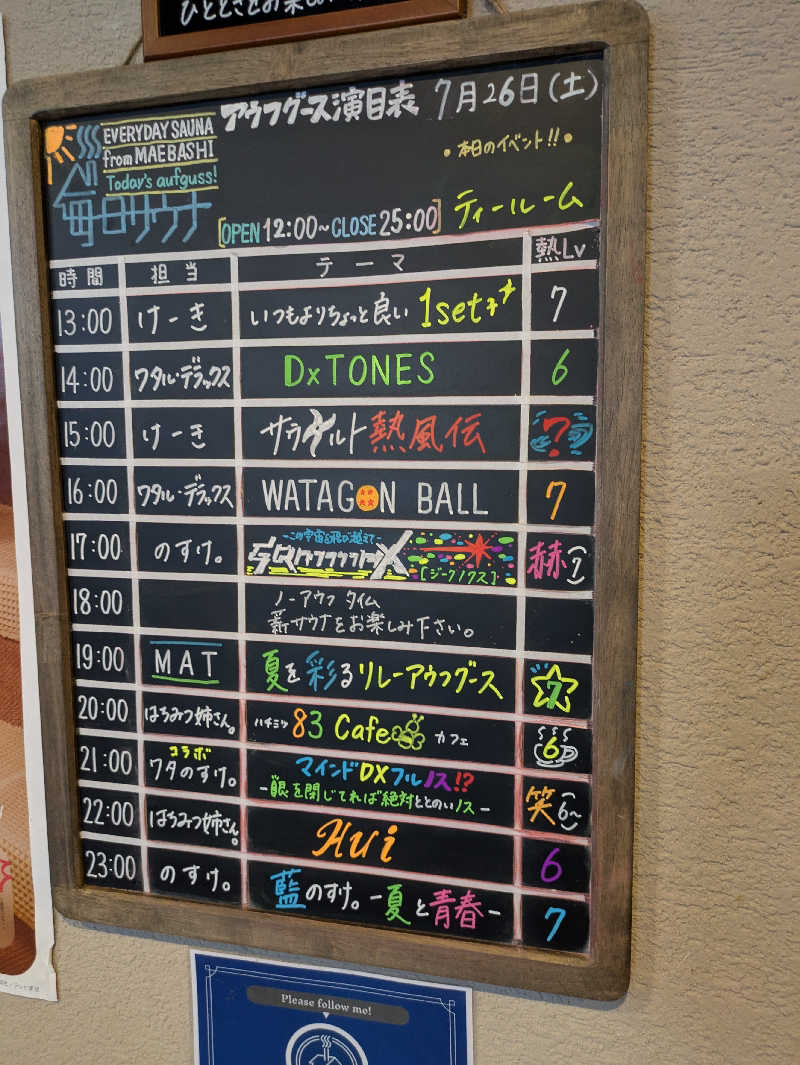 ひとときとお楽し
アウフグース演目表 7月26日(土)
EVERYDAY SAUNA
from MAEBASHI
Today's aufguss!
毎日サウナ
•本日のイベント!!•
[OPEN 12:00~CLOSE 25:00]
ティールーム
時間 担当 テーマ 熱Lv
13:00 けーき いつもよりちょっと良い 1set 7
14:00 ワタル・デラックス DxTONES 6
15:00 けーき サウナイルト熱風伝 ?
16:00 ワタル・デラックス WATAGON BALL 7
17:00 のすけ。 -この宇宙を飛び越えて- [ジークノクス] 赫(7)
18:00 ノーアウフ タイム
薪サウナをお楽しみ下さい。
19:00 MAT 夏を彩るリレーアウフグース 7
20:00 はちみつ姉さん。 ハチミツ 83 Cafe カフェ 6
21:00 コラボ ワタのすけ。 マインドDXフルノス!?
-眼を閉じてれば絶対ととのいノス- 笑(6~)
22:00 はちみつ姉さん。 Hui 6
23:00 のすけ。 藍のすけ。-夏と青春- 7
Please follow me!